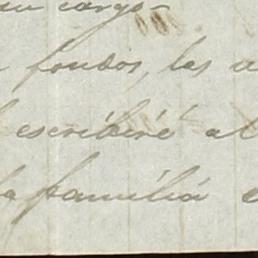 su cargo-
fondos, las
escribiré al
la familia